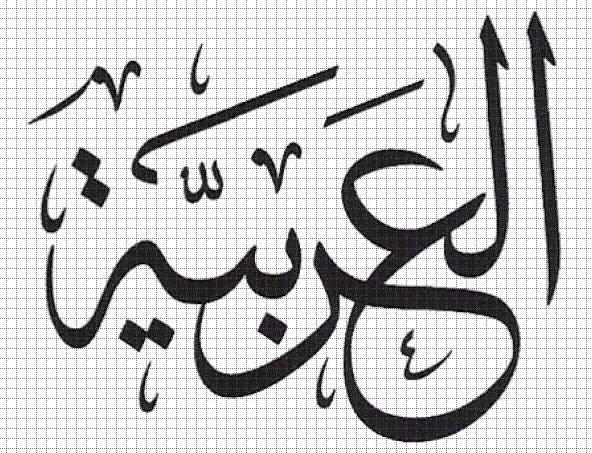 العربيّة